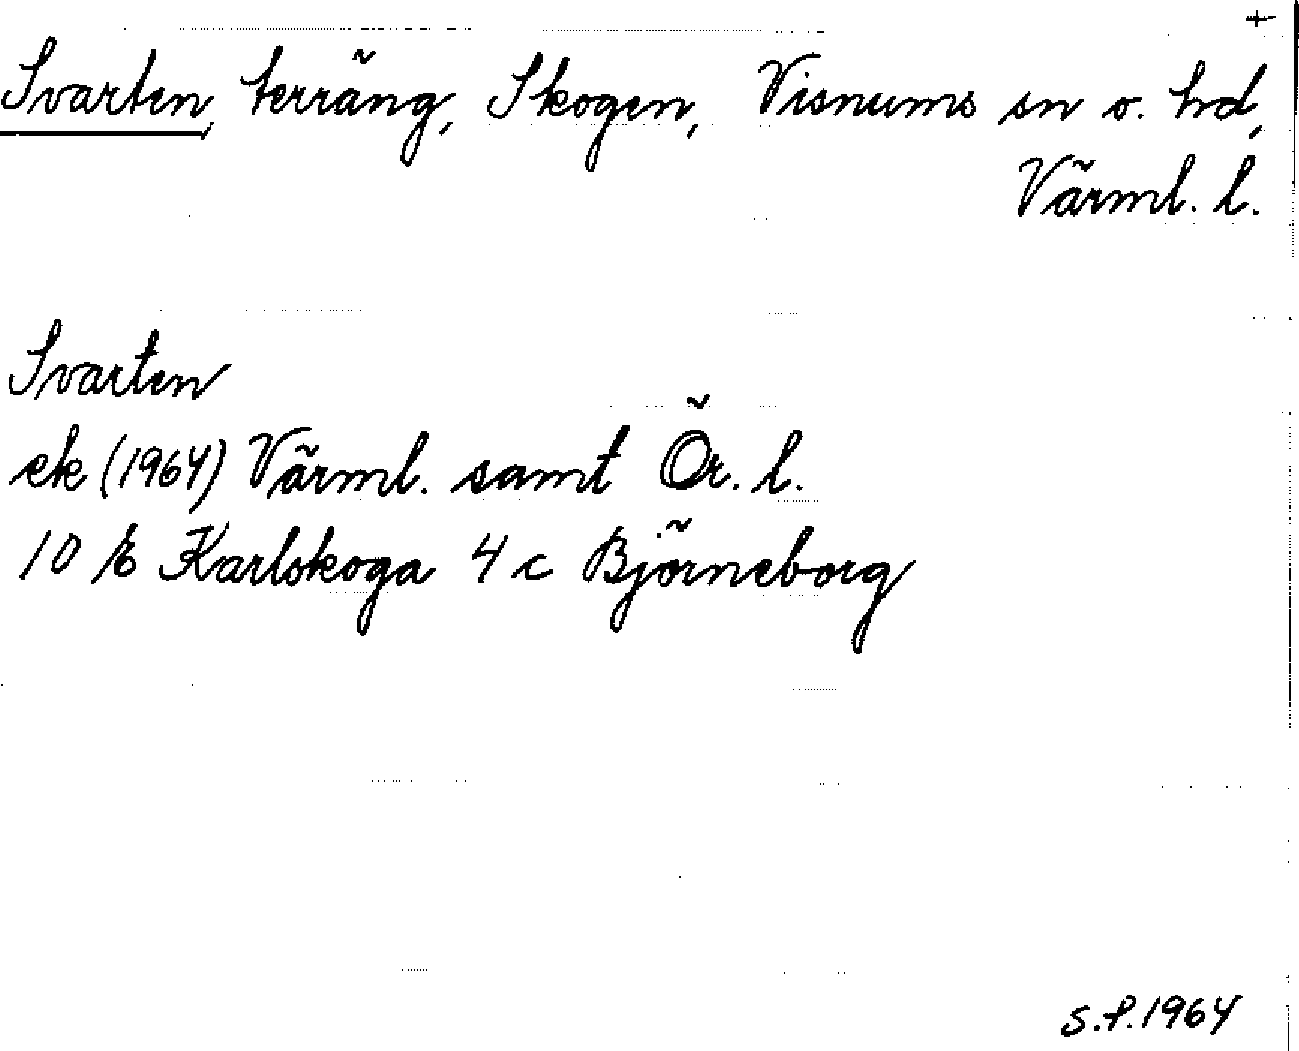 +
Svarten, terräng, Skogen, Visnums sn o. hd,
Värml. l.
Svarten
ek (1964) Värml. samt Ör. l.
10 E Karlskoga 4 c Björneborg
S.P. 1964